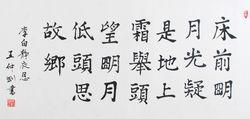 床前明
月光疑
是地上
霜舉頭
望明月
低頭思
故鄉
李白靜夜思
王仲書